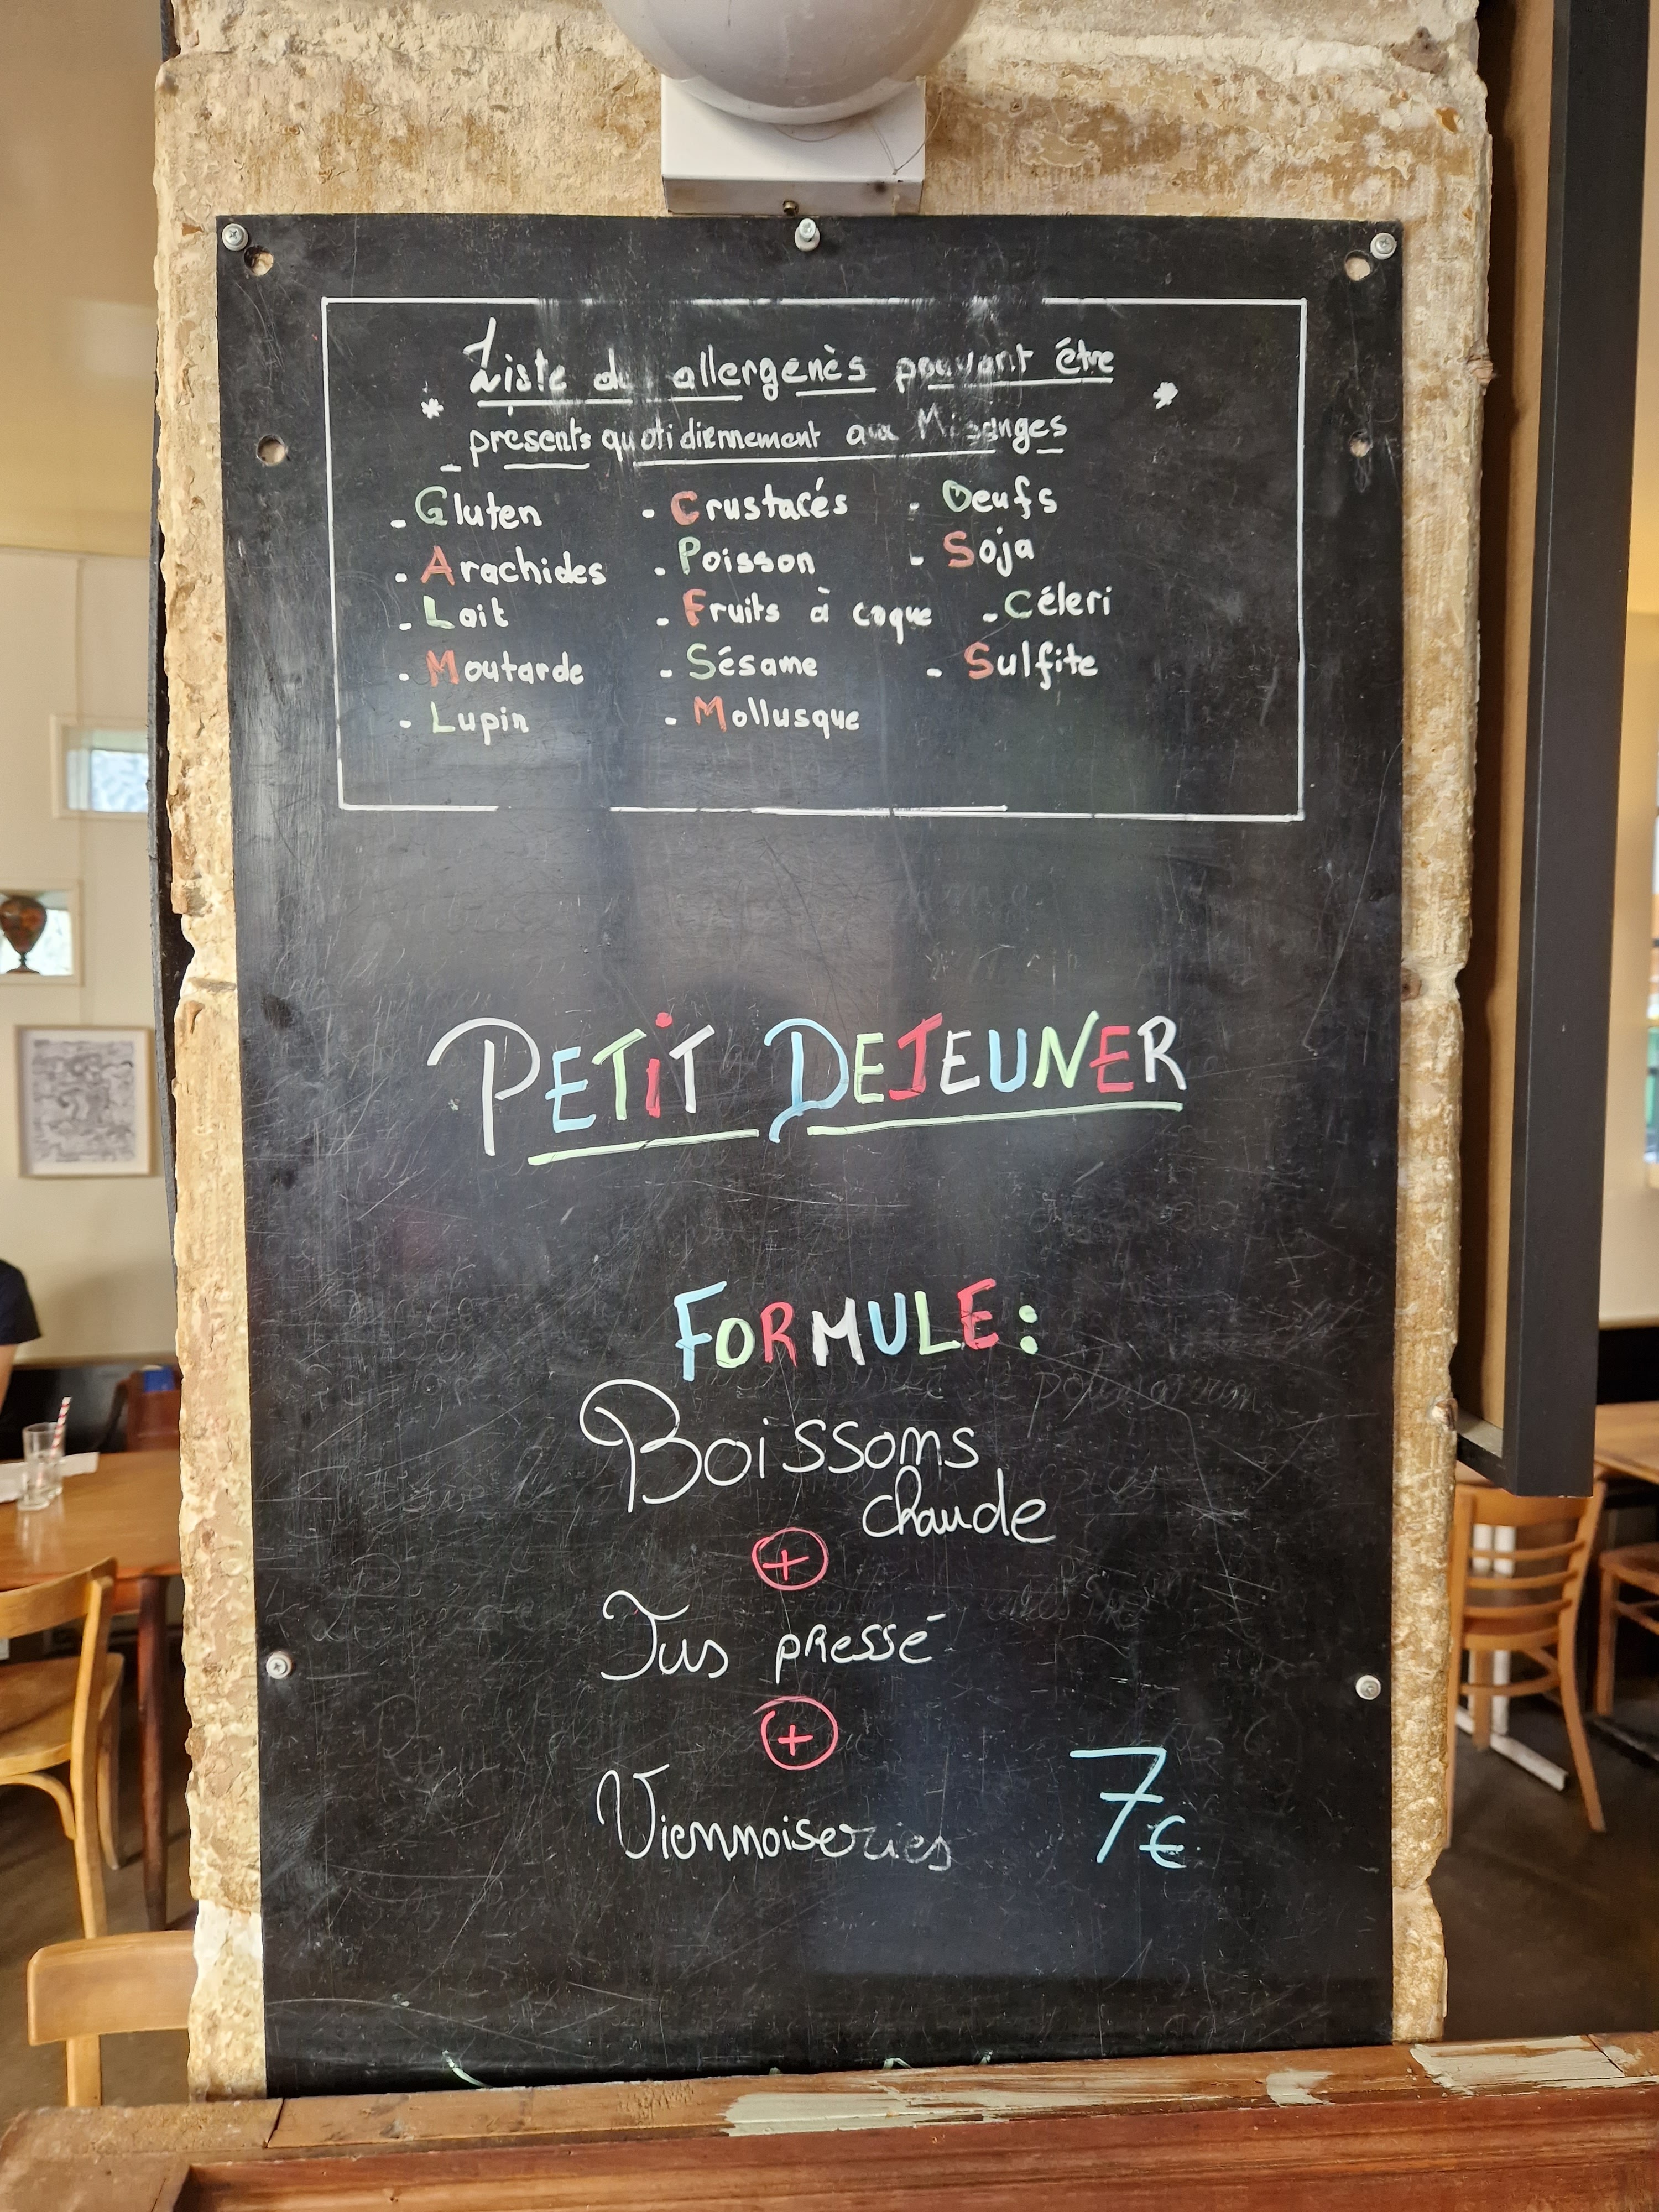 Liste des allergenès pouvant être
présents quotidiennement aux Mésanges
- Gluten
- Crustacés
- Oeufs
- Arachides
- Poisson
- Soja
- Lait
- Fruits à coque
- Céleri
- Moutarde
- Sésame
- Sulfite
- Lupin
- Mollusque
PETiT DEJEUNER
FORMULE:
Boissons
chaude
+
Jus pressé
+
Viennoiseries
7€